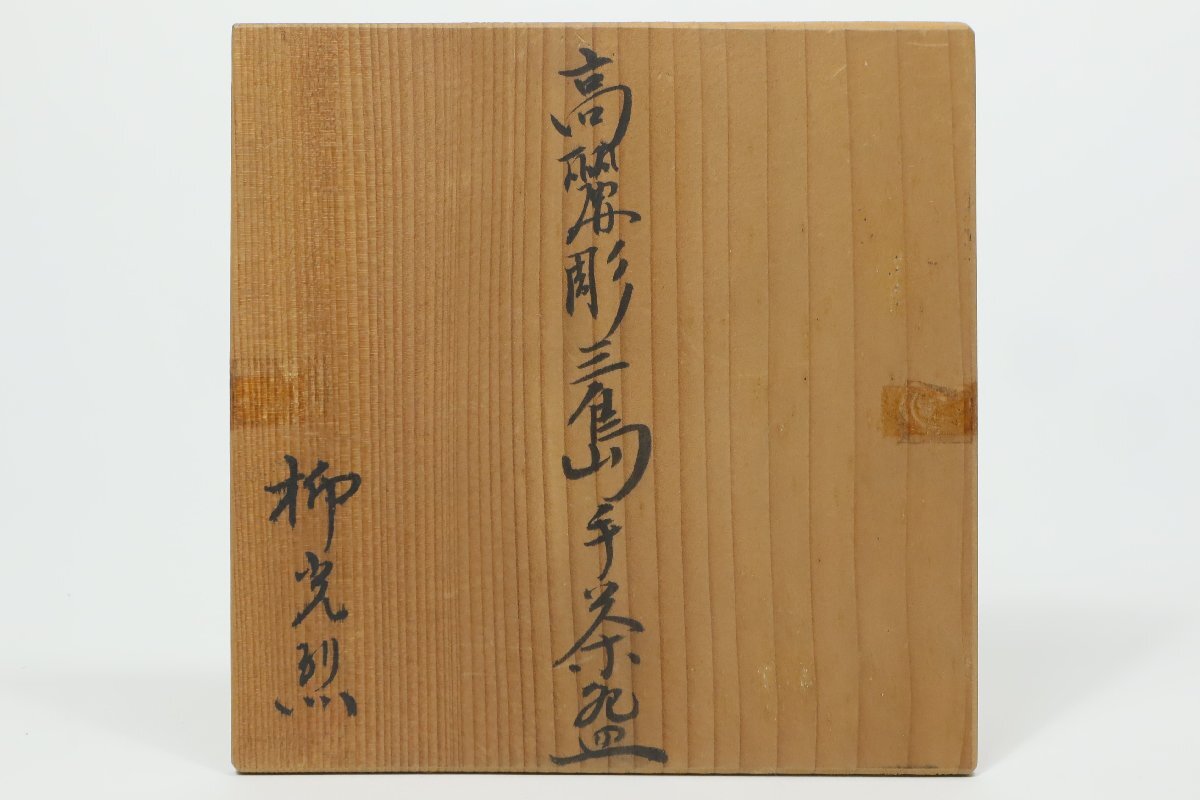 高麗彫三島手茶盌
柳光烈